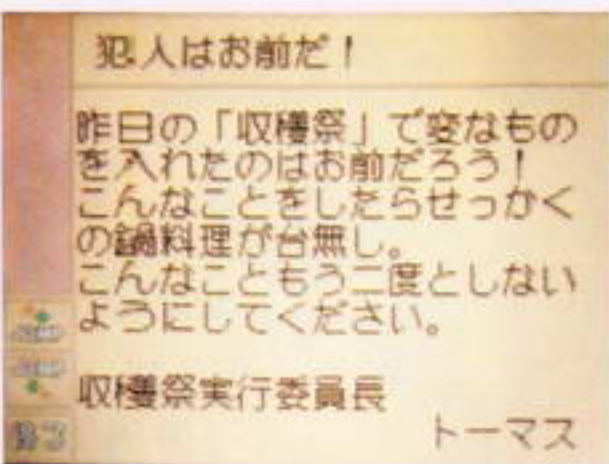 犯人はお前だ！
昨日の「収穫祭」で変なもの
を入れたのはお前だろう！
こんなことをしたらせっかく
の鍋料理が台無し。
こんなこともう二度としない
ようにしてください。
収穫祭実行委員長
トーマス